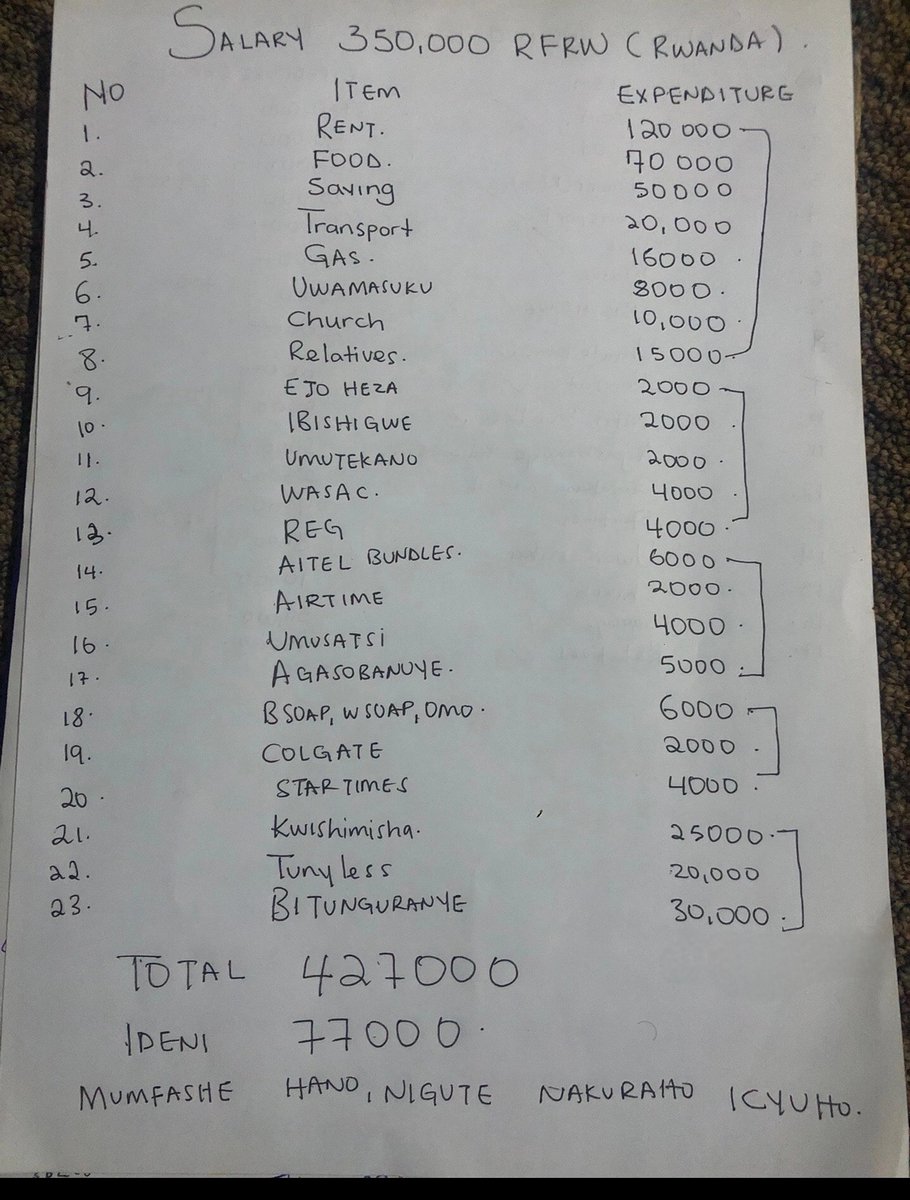 SALARY 350,000 RFRW (RWANDA).
NO ITEM EXPENDITURE
1. RENT. 120 000
2. FOOD. 70 000
3. Saving 50000
4. Transport 20,000
5. GAS. 16000
6. UWAMASUKU 8000
7. Church 10,000
8. Relatives. 15000
9. EJO HEZA 2000
10. IBISHIGWE 2000
11. UMUTEKANO 2000
12. WASAC. 4000
13. REG 4000
14. AITEL BUNDLES. 6000
15. AIRTIME 2000
16. UMUSATSi 4000
17. AGASOBANUYE. 5000
18. BSOAP, WSOAP, OMO. 6000
19. COLGATE 2000
20. STARTIMES 4000
21. Kwishimisha. 25000
22. Tunyless 20,000
23. BITUNGURANYE 30,000
TOTAL 427000
IDENI 77000.
MUMFASHE HANO, NIGUTE NAKURAHO ICYUHO.